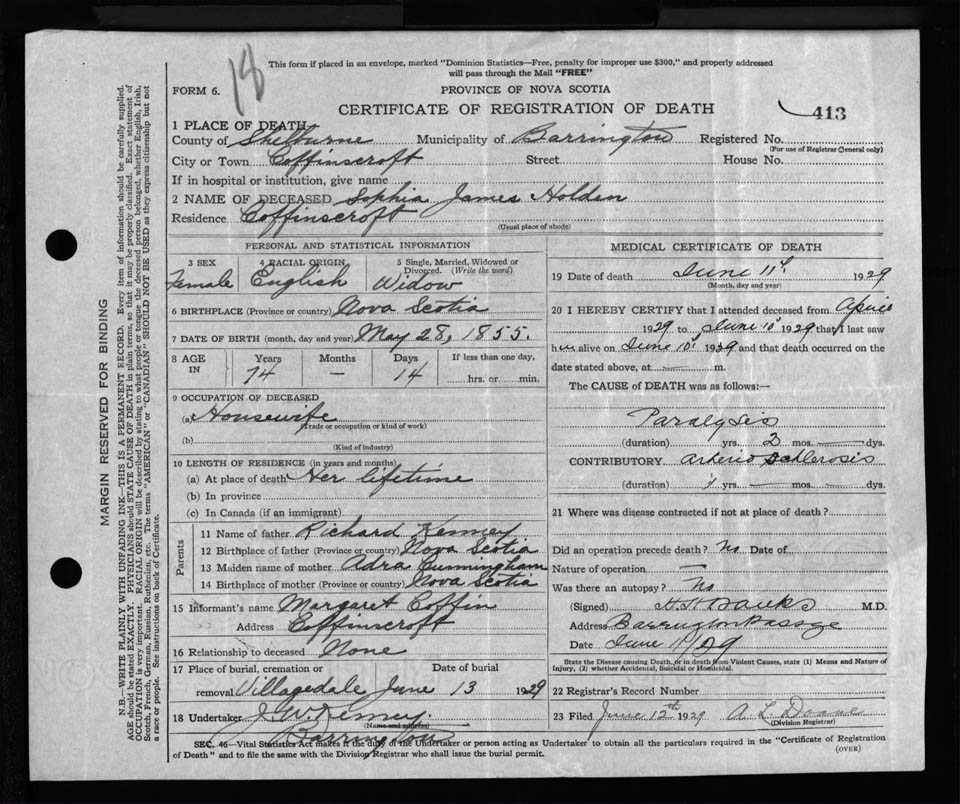 18
This form if placed in an envelope, marked "Dominion Statistics—Free, penalty for improper use $300," and properly addressed
will pass through the Mail "FREE"
FORM 6.
PROVINCE OF NOVA SCOTIA
CERTIFICATE OF REGISTRATION OF DEATH
413
1 PLACE OF DEATH
County of Shelburne Municipality of Barrington Registered No.
(For use of Registrar General only)
City or Town Coffinscroft Street House No.
If in hospital or institution, give name
2 NAME OF DECEASED Sophia James Holden
Residence Coffinscroft
(Usual place of abode)
PERSONAL AND STATISTICAL INFORMATION
3 SEX 4 RACIAL ORIGIN 5 Single, Married, Widowed or
Divorced. (Write the word)
Female English Widow
6 BIRTHPLACE (Province or country) Nova Scotia
7 DATE OF BIRTH (month, day and year) May 28, 1855.
8 AGE IN Years Months Days If less than one day,
74 — 14 hrs. or min.
9 OCCUPATION OF DECEASED
(a) Housewife
(Trade or occupation or kind of work)
(b)
(Kind of industry)
10 LENGTH OF RESIDENCE (in years and months)
(a) At place of death Her lifetime
(b) In province
(c) In Canada (if an immigrant)
Parents
11 Name of father Richard Kenney
12 Birthplace of father (Province or country) Nova Scotia
13 Maiden name of mother Adra Cunningham
14 Birthplace of mother (Province or country) Nova Scotia
15 Informant's name Margaret Coffin
Address Coffinscroft
16 Relationship to deceased None
17 Place of burial, cremation or Date of burial
removal Villagedale June 13 1929
18 Undertaker J. W. Kenney
(Name and address)
Barrington
MEDICAL CERTIFICATE OF DEATH
19 Date of death June 11 1929
(Month, day and year)
20 I HEREBY CERTIFY that I attended deceased from April
1929 to June 10 1929 that I last saw
h alive on June 10 1929 and that death occurred on the
date stated above, at — m.
The CAUSE of DEATH was as follows:—
Paralysis
(duration) yrs. 2 mos. — dys.
CONTRIBUTORY arterio Schlerosis
(duration) yrs. — mos. — dys.
21 Where was disease contracted if not at place of death?
Did an operation precede death? No Date of
Nature of operation —
Was there an autopsy? No
(Signed) H. H. Banks M.D.
Address Barrington Passage
Date June 11/29
State the Disease causing Death, or in death from Violent Causes, state (1) Means and Nature of
Injury, (2) whether Accidental, Suicidal or Homicidal.
22 Registrar's Record Number
23 Filed June 12th 1929 A. L. Doane
(Division Registrar)
SEC. 46—Vital Statistics Act makes it the duty of the Undertaker or person acting as Undertaker to obtain all the particulars required in the "Certificate of Registration
of Death" and to file the same with the Division Registrar who shall issue the burial permit.
(OVER)
MARGIN RESERVED FOR BINDING
N.B.—WRITE PLAINLY WITH UNFADING INK—THIS IS A PERMANENT RECORD. Every item of information should be carefully supplied.
AGE should be stated EXACTLY. PHYSICIANS should STATE CAUSE OF DEATH in plain terms, so that it may be properly classified. Exact statement of
OCCUPATION is very important. RACIAL ORIGIN will be described by stating to what people or tongue the deceased person belonged, whether English, Irish,
Scotch, French, German, Russian, Ruthenian, etc. The terms "AMERICAN" or "CANADIAN" SHOULD NOT BE USED as they express citizenship but not
a race or people. See instructions on back of Certificate.